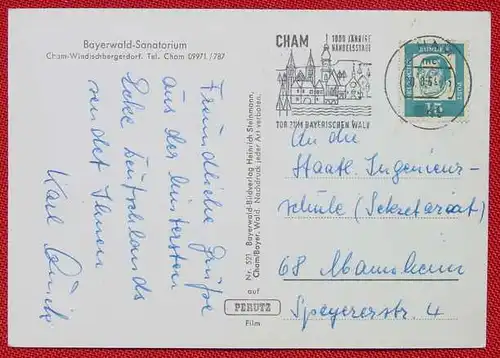 Bayerwald-Sanatorium
Cham-Windischbergerdorf. Tel. Cham 09971/787
Freundliche Grüße
aus der hintersten
Ecke Deutschlands
sendet Ihnen
Karl
Nr. 521. Bayerwald-Bildverlag Heinrich Steinmann,
Cham/Bayer. Wald. Nachdruck jeder Art verboten.
auf
PERUTZ
Film
CHAM
1000 JÄHRIGE
HANDELSSTADT
TOR ZUM BAYERISCHEN WALD
DEUTSCHE BUNDESPOST
15
An die
Staatl. Ingenieur-
schule (Sekretariat)
68 Mannheim
Speyererstr. 4